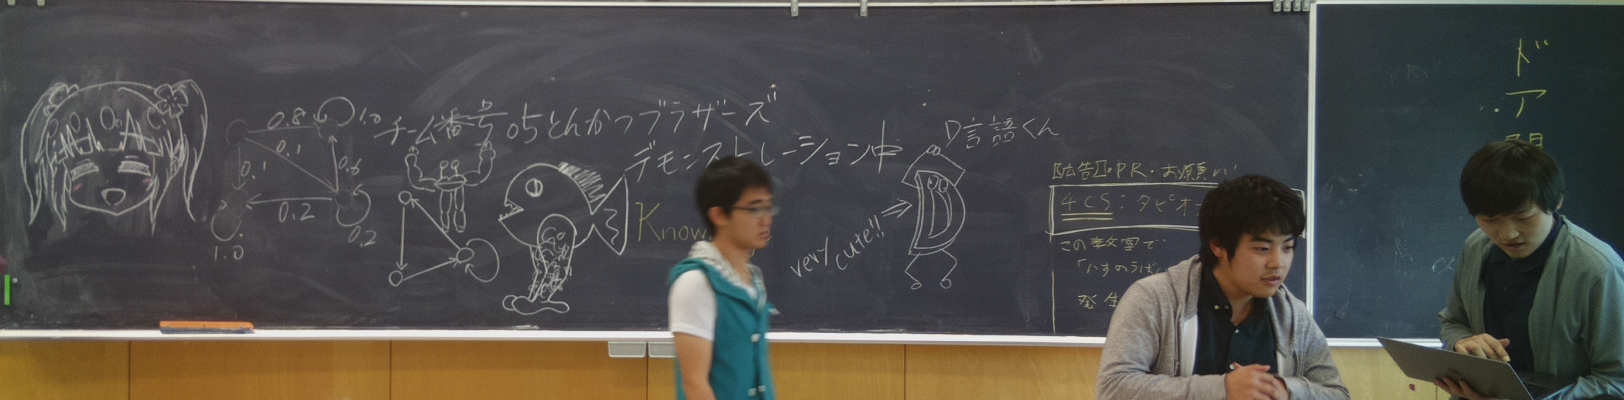 0.8
1.0
0.1
0.1
0.6
0.2
0.2
1.0
チーム番号05とんかつブラザーズ
デモンストレーション中
Know
D言語くん
very cute!!
【広告】・PR・お願い
4CS:タピオ
この教室で
発生
ドア
開